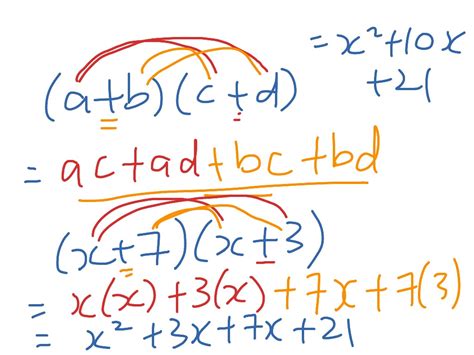 (a+b)(c+d)
= ac+ad+bc+bd
(x+7)(x+3)
= x(x)+3(x)+7x+7(3)
= x²+3x+7x+21
= x²+10x
+21